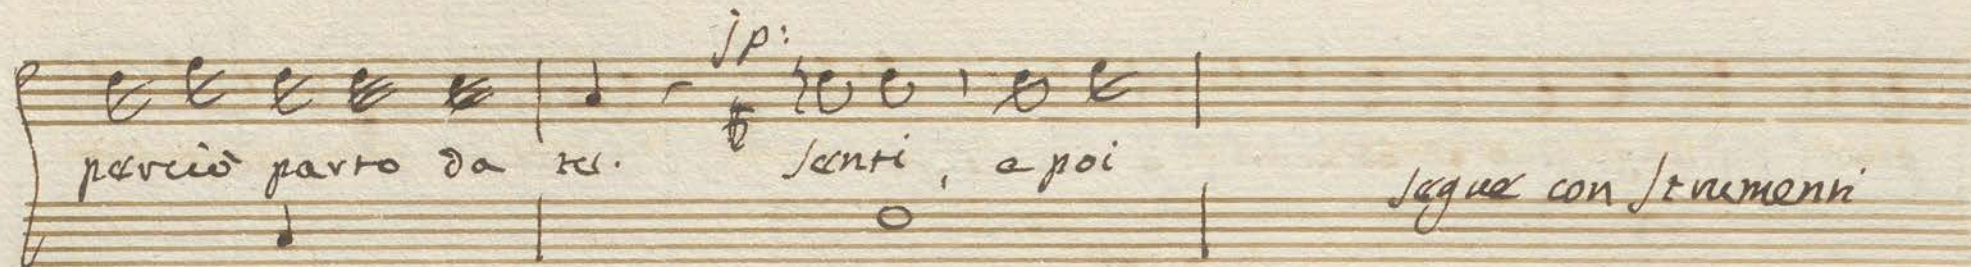 sp:
perciò parto da te. senti, e poi
segue con strumenti